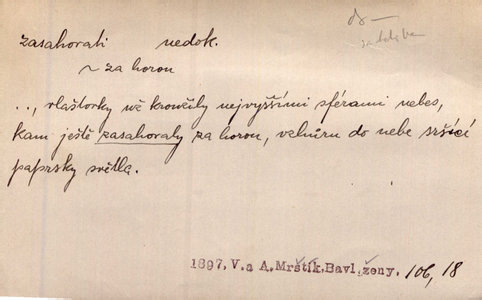 zasahovati nedok.
~ za horou
.., vlaštovky už kroužily nejvyššími sférami nebes,
kam ještě zasahovaly za horou, vzhůru do nebe sršící
paprsky světla.
1897, V. a A. Mrštík, Bavl. ženy, 106, 18